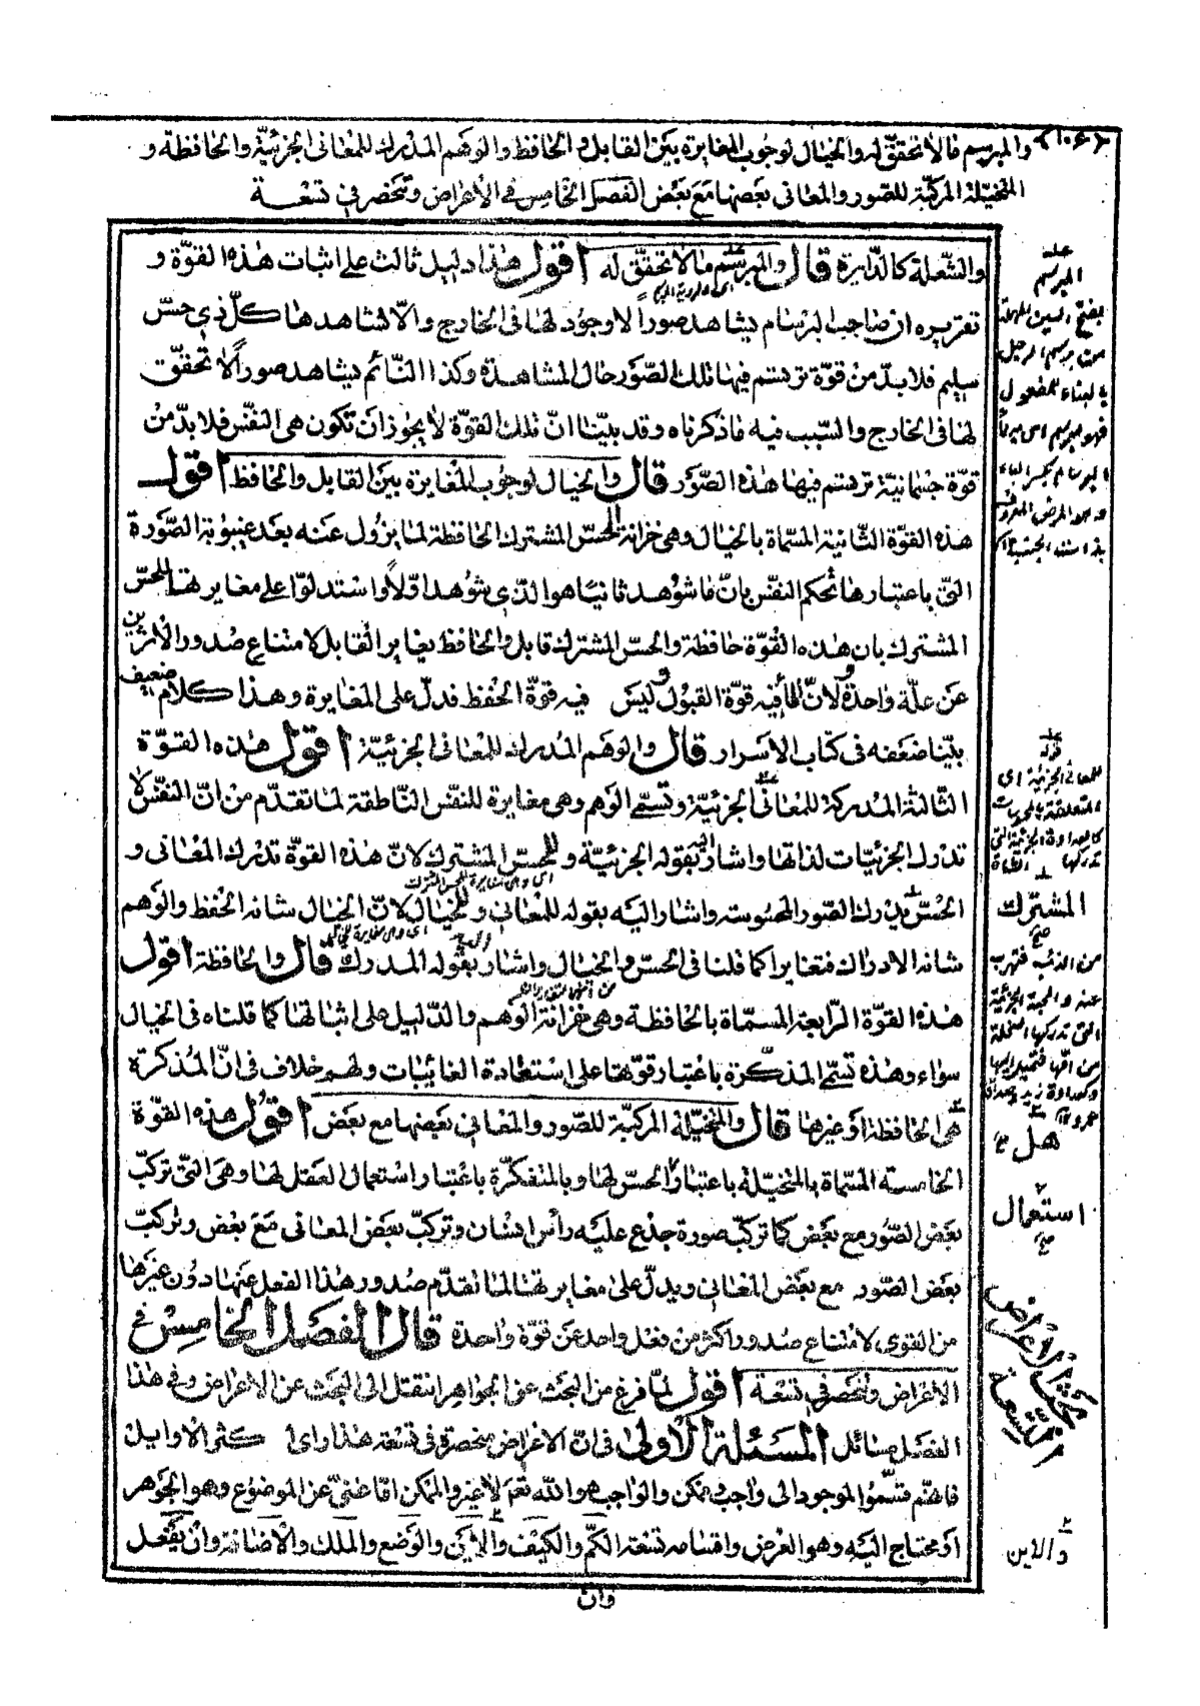 ﴿١٠٤﴾ والمبرسم مالا تحقق له والخيال لوجوب المغايرة بين القابل والحافظ والوهم المدرك للمعانى الجزئيّة والحافظة و
المتخيّلة المركّبة للصّور والمعانى بعضها مع بعض الفصل الخامس فى الأعراض وتنحصر فى تسعة
والشّعلة كالدّايرة قال والمبرسم مالا تحقّق له اقول هذا دليل ثالث على اثبات هذه القوّة و
تقريره ان صاحب البرسام يشاهد صوراً لا وجود لها فى الخارج والّا لشاهدها كلّ ذى حسّ
سليم فلا بدّ من قوّة ترتسم فيها تلك الصّور حال المشاهدة وكذا النّائم يشاهد صوراً لا تحقّق
لها فى الخارج والسّبب فيه ما ذكرناه وقد بيّنا انّ تلك القوّة لا يجوز ان تكون هى النّفس فلا بدّ من
قوّة جسمانيّة ترتسم فيها هذه الصّور قال والخيال لوجوب المغايرة بين القابل والحافظ اقول
هذه القوّة الثّانية المسّماة بالخيال وهى خزانة الحسّ المشترك الحافظة لما يزول عنه بعد غيبوبة الصّورة
التى باعتبارها تحكم النفس بانّ ما شوهد ثانيا هو الّذى شوهد اوّلاً واستدلّوا على مغايرتها للحسّ
المشترك بان هذه القوّة حافظة والحسّ المشترك قابل والحافظ يغاير القابل لامتناع صدور الامرين
عن علّة واحدة ولانّ الماء فيه قوّة القبول وليس فيه قوّة الحفظ فدلّ على المغايرة وهذا كلام ضعيف
بيّنا ضعفه فى كتاب الاسرار قال والوهم المدرك للمعانى الجزئيّة اقول هذه القوّة
الثّالثة المدركة للمعانى الجزئيّة وتسمّى الوهم وهى مغايرة للنفس النّاطقة لما تقدّم من انّ النفس لا
تدرك الجزئيّات لذاتها واشار اليه بقوله الجزئيّة وللحسّ المشترك لانّ هذه القوّة تدرك المعانى و
الحسّ يدرك الصّور المحسوسة واشار اليه بقوله للمعانى وللخيال لانّ الخيال شانه الحفظ والوهم
شانه الادراك فتغايرا كما قلنا فى الحسّ والخيال واشار اليه بقوله المدرك قال والحافظة اقول
هذه القوّة الرّابعة المسمّاة بالحافظة وهى خزانة الوهم والدّليل على اثباتها كما قلناه فى الخيال
سواء وهذه تسمّى المذكّرة باعتبار قوّتها على استعادة الغائبات ولهم خلاف فى انّ المذكرة
هى الحافظة او غيرها قال والمتخيّلة المركبّة للصّور والمعانى بعضها مع بعض اقول هذه القوّة
الخامسة المسّماة بالمتخيّلة باعتبار الحسّ لها وبالمتفكّرة باعتبار استعمال العقل لها وهى التى تركّب
بعض الصّور مع بعض كما تركّب صورة جذع عليه رأس انسان وتركّب بعض المعانى مع بعض وتركّب
بعض الصّور مع بعض المعانى ويدلّ على مغايرتها لما تقدّم صدور هذا الفعل عنها دون غيرها
من القوى لامتناع صدور اكثر من فعل واحد عن قوّة واحدة قال الفصل الخامس فى
الاعراض وتنحصر فى تسعة اقول لمّا فرغ من البحث عن الجواهر انتقل الى البحث عن الاعراض وفى هذا
الفصل مسائل المسئلة الاولى فى انّ الاعراض منحصرة فى تسعة هذا رأى اكثر الاوايل
فانّهم قسّموا الموجود الى واجب وممكن والواجب هو اللّه تعم لا غير والممكن امّا غنىّ عن الموضوع وهو الجوهر
او محتاج اليه وهو العرض واقسامه تسعة الكمّ والكيف والاين والوضع والملك والاضافة وان يفعل
وان
المبرسم
بفتح السين المهملة
من برسم الرجل
بالبناء للمفعول
فهو مبرسم اى به
البرسام بكسر الباء
وهو المرض المعروف
بذات الجنب
قوله
للمعانى الجزئية اى
المتعلقة بالمحسوسات
كالعداوة الجزئية التى
تدركها الشاة
المشترك
صح
من الذئب فتهرب
عنه والمحبة الجزئية
التى تدركها السخلة
من امّها فتميل اليها
وكعداوة زيد وصداقة
عمرو
هل
استعمال
صح
الاعراض
التسعة
والاين